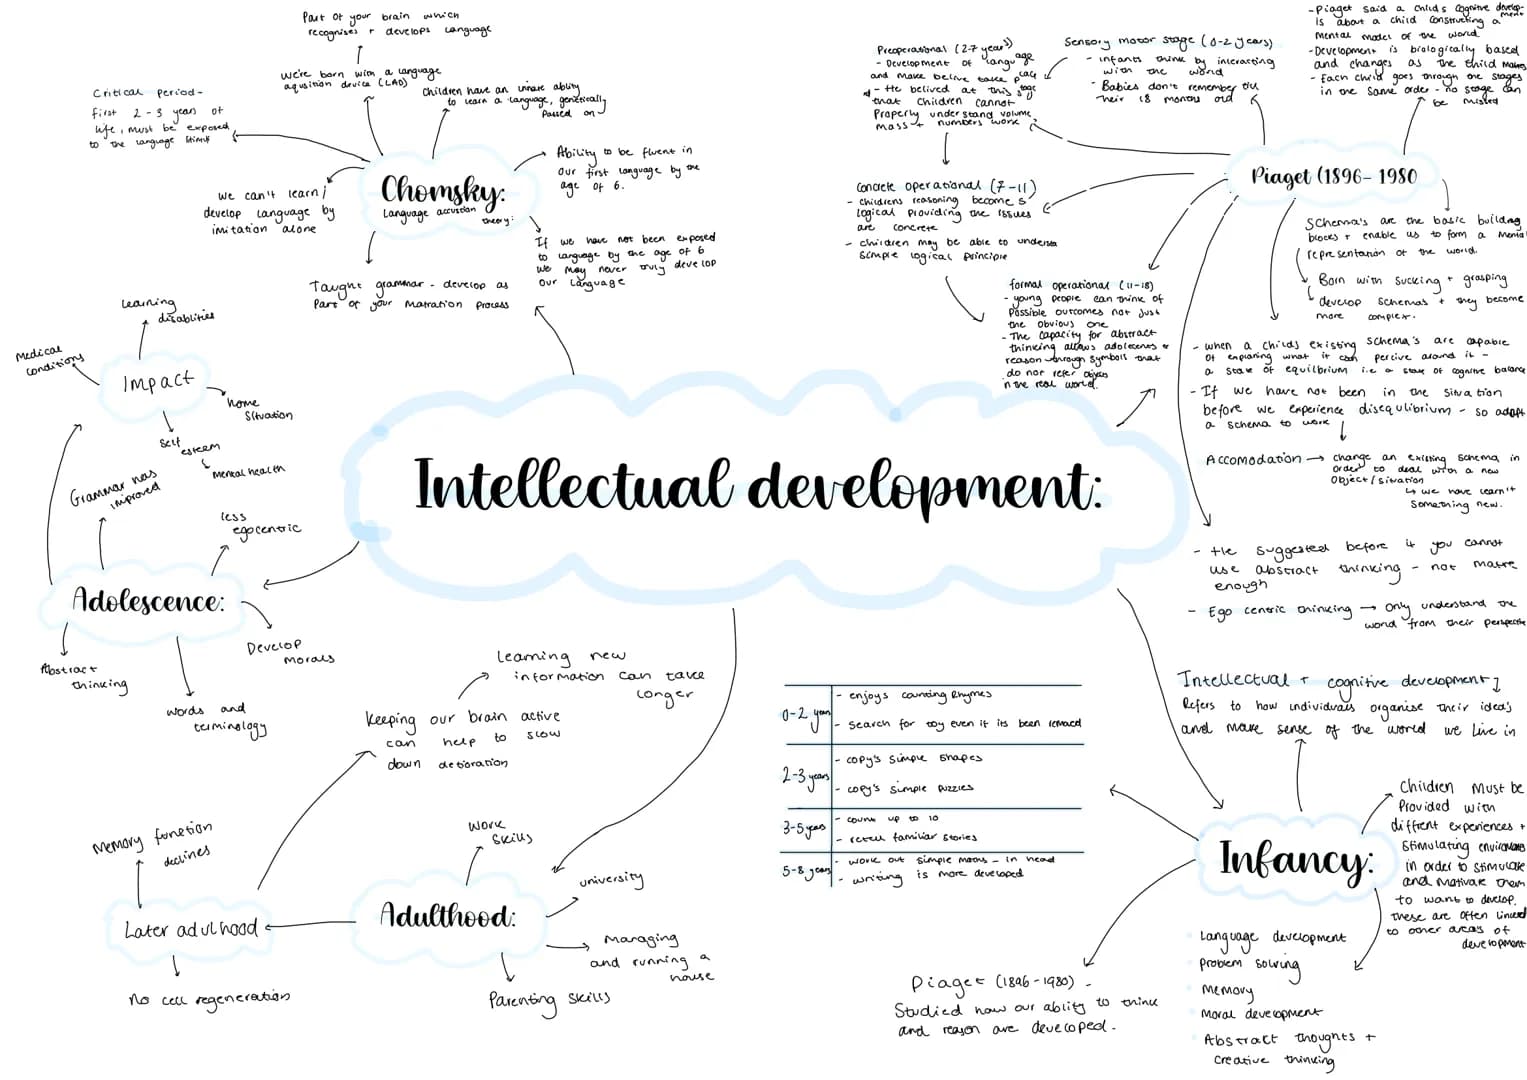 Part of your brain which
recognises + develops language
We're born with a language
aqusition device (LAD)
Children have an innate ability
to learn a language, genetically
passed on
Critical period-
first 2-3 years of
life, must be exposed
to the language stimuli
Chomsky:
Language theory:
Ability to be fluent in
our first language by the
age of 6.
We can't learn/
develop language by
imitation alone
If we have not been exposed
to language by the age of 6
we may never truly develop
our language
Taught grammar - develop as
part of your process
Preoperational (2-7 years)
- Development of language
and make belive take place
- He belived at this stage
that children cannot
properly understand volume,
mass + numbers work
Sensory motor stage (0-2 years)
- infants think by interacting
with the world
- Babies don't remember till
their 18 months old
- Piaget said a childs cognitive development
is about a child constructing a
mental model of the world
- Development is biologically based
and changes as the child
- Each child goes through the stages
in the same order - no stage can
be missed
Piaget (1896-1980
Concrete operational (7-11)
- childrens reasoning becomes
logical providing the issues
are concrete
- children may be able to
simple logical principle
formal operational (11-18)
- young people can think of
possible outcomes not just
the obvious one
- The capacity for abstract
thinking allows
reason through symbols that
do not refer objects
in the real world.
Schema's are the basic building
blocks + enable us to form a mental
representation of the world.
Born with sucking + grasping
develop schemas + they become
more complex.
- when a childs existing schema's are capable
of explaning what it can percive around it -
a state of equilbrium i.e a state of cognitive balance
- If we have not been in the situation
before we experience disequlibrium - so adapt
a schema to work
Accomodation → change an existing schema, in
order to deal with a new
object/situation
↳ we have learn't
something new.
- He suggested before 4 you cannot
use abstract thinking - not mature
enough
- Ego centric thinking → only understand the
world from their perspective
Learning
disablities
Medical
conditions
Impact
home
situation
self
esteem
Mental health
Grammar has
improved
less
egocentric
Adolescence:
Develop
morals
Abstract
thinking
words and
terminology
Intellectual development:
Learning new
information can take
longer
Keeping our brain active
can help to slow
down detioration
Memory function
declines
Later adulhood
No cell regeneration
Work
skills
university
Adulthood:
Managing
and running a
house
Parenting skills
0-2 years
- enjoys counting Rhymes
- search for toy even if its been removed
2-3 years
- copy's simple shapes
- copy's simple puzzles
3-5 years
- count up to 10
- retell familiar stories
5-8 years
- work out simple maths - in head
- writing is more developed
Intellectual + cognitive development
Refers to how individuals organise their idea's
and make sense of the world we live in
Infancy:
Children must be
provided with
diffrent experiences +
stimulating
in order to stimulate
and motivate them
to want to develop.
These are often linked
to other areas of
development
Language development
problem solving
Memory
Moral development
Abstract thoughts +
creative thinking
Piaget (1896-1980) -
Studied how our ability to think
and reason are developed.